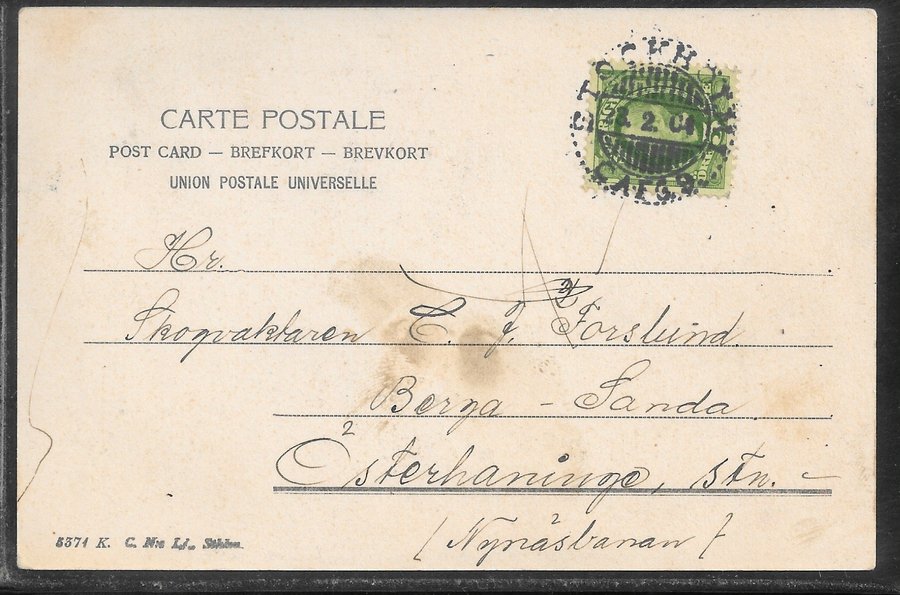 CARTE POSTALE
POST CARD — BREFKORT — BREVKORT
UNION POSTALE UNIVERSELLE
STOCKHOLM
2.04
Hr.
Skogvaktaren C. J. Forslund
Berga - Sanda
2
Österhaninge, stn. -
(Nynäsbanan)
5371 K. C. N:s Lj., Sthlm.